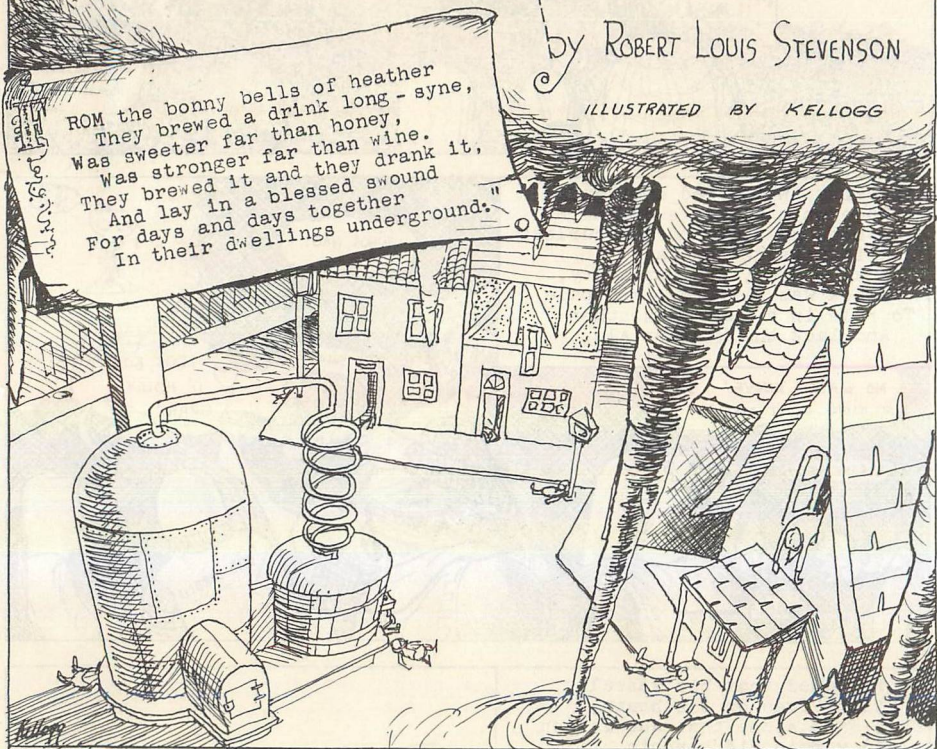 by ROBERT LOUIS STEVENSON
ILLUSTRATED BY KELLOGG
ROM the bonny bells of heather
They brewed a drink long-syne,
Was sweeter far than honey,
Was stronger far than wine.
They brewed it and they drank it,
And lay in a blessed swound
For days and days together
In their dwellings underground."
Kellogg